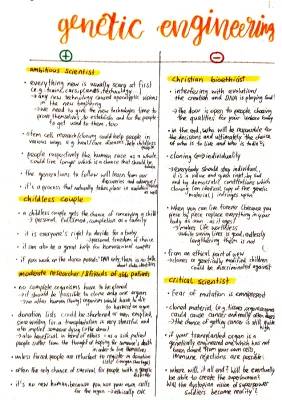 genetic engineering
+
ambitious scientist
• everything new is usually scary at first
(e.g. trains, cars, phones, technology
→ any new technology caused apocalyptic visions
in the new beginning
→ we need to give the new technologies time to
prove themselves, to establish and for the people
to get used to them, too
• stem cell research/cloning could help people in
various ways, e.g. heal/cure diseases, help childless couples
• people respectively the human race as a whole
could live longer which is a chance that should be taken
• the generations to follow will learn from our
• it's a process that naturally takes place in
childless couple
• a childless couple gets the chance of conceiving a child
→ personal fulfilment, completion as a family
• it is everyone's right to decide for a baby
→ personal freedom of choice
• it can also be a great help for homosexual couples
• if you work on the stones parents' DNA
moderate researcher / & friends of sick patients
• no complete organisms have to be cloned
→ it should be possible to clone ears and organs
→ no other human beings/organisms would have to die
• donation lists could be shortened or even emptied,
cause waiting for a transplantation is very stressful and
also implied someone dying (= the donor)
→ also beneficial in terms of ethics - as a sick patient
people suffer from the thought of hoping for someone's death
in order to live themselves
• unless forced people are reluctant to register as donation
• often the only chance of survival for people with a
• it's no new human, because you use your own cells
for the organ → ethically OK
−
christian bioethicist
• interfering with evolution/
the creation and DNA is playing God
• the door is open to people choosing
the qualities for your unborn baby
• in the end, who will be responsible for
the decisions and ultimately the choice
of who is to live and who is to die?
• cloning ↔ individuality
→ everybody should stay individual,
it is a value and quality kept up
by democratic constitutions which
cloning (an identical copy of the genetic
material) infringes upon
• When you can live forever because you
piece by piece replace everything in your
body at own use it ages?
→ makes life worthless
→ while saving lives is good, endlessly
lengthening them is not
• from an ethical point of view
→ clones or genetically modified children
could be discriminated against
critical scientist
• fear of mutation is omnipresent
• cloned material (e.g. tissue, organs/cells)
could cause cancer and really often
the chance of getting cancer is still quite high
• if your transplanted organ is a
genetically engineered one which has not
been cloned from your own cells,
immune rejections are possible
• where will it all end? Will we eventually
be able to create the superhuman?
Will the dystopian vision of superpower
soldiers become reality?